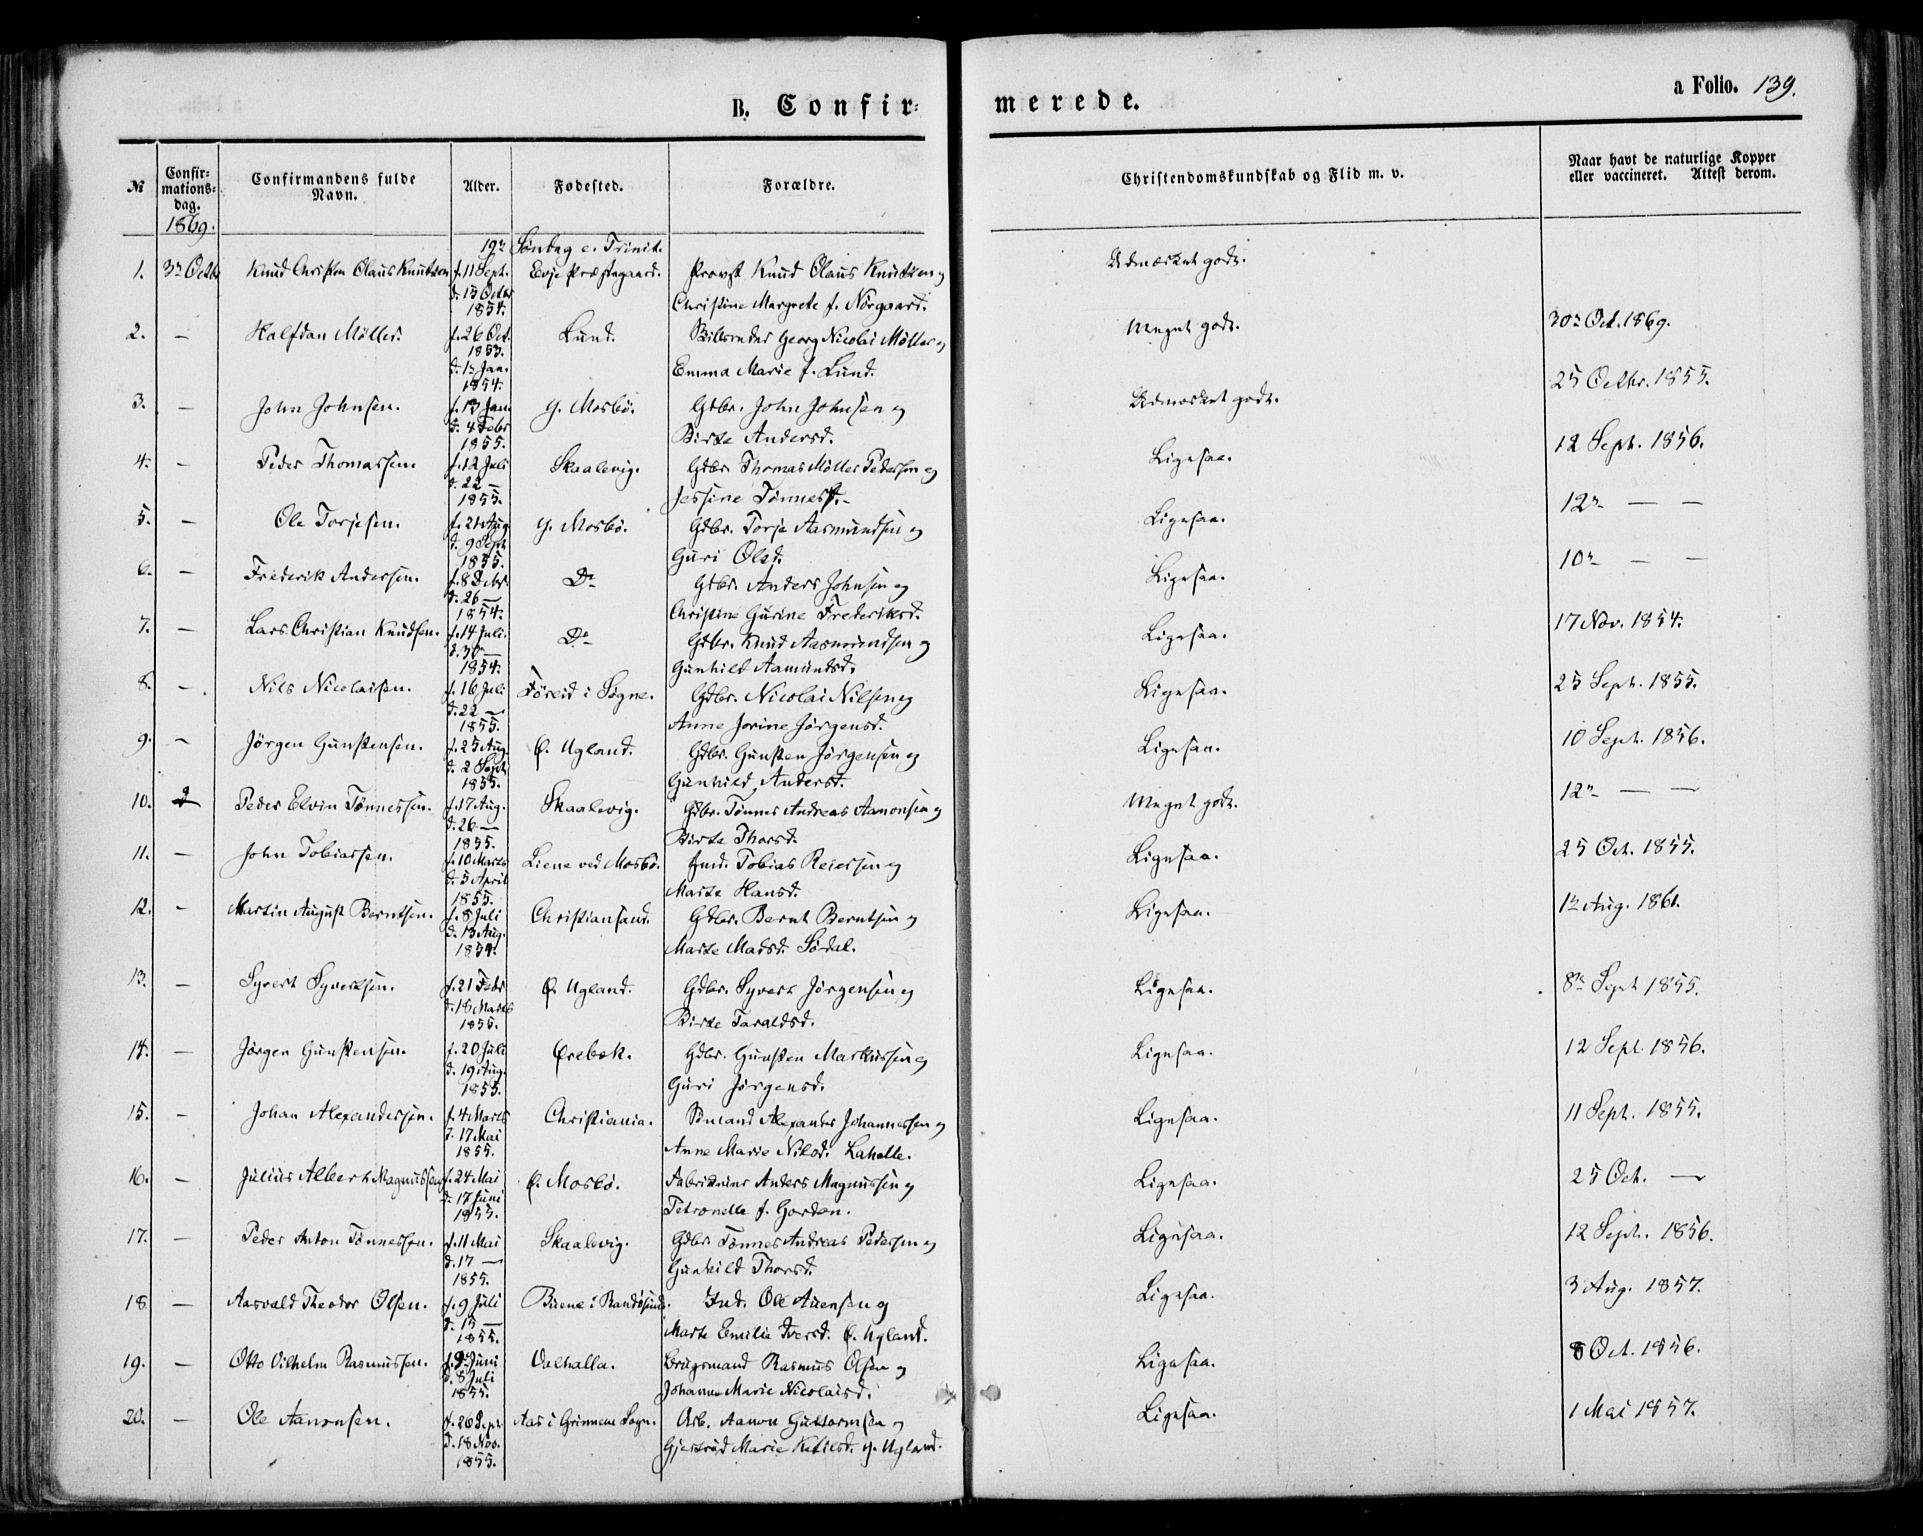 B. Confir-
merede.
a Folio. 139.
№
Confir-
mations-
dag.
Confirmandens fulde
Navn.
Alder.
Fødested.
Forældre.
Christendomskundskab og Flid m. v.
Naar havt de naturlige Kopper
eller vaccineret. Attest derom.
1869.
19de Søndag e. Trinit.
1. 3de Octbr Knud Christen Olaus Knudtzen f. 11 Sept. Evje Præstegaard. Provst Knud Olaus Knudtzen og Udmærket godt.
d. 15 Octbr
1854. Christine Margrete f. Nørgaard. 30te Oct. 1869.
2. — Halfdan Møller. f. 26 Oct. Lund. Georg Nicolai Møller og Meget godt.
1853.
d. 1ste Jan.
1854. Emma Marie f. Lund. 25 Octbr. 1855.
3. — John Johnsen. f. 13 Jan. y. Mosbø. Gdbr. John Johnsen og Udmærket godt.
d. 4 Febr
1855. Birte Andersd. 12 Sept. 1856.
4. — Peder Thomassen f. 12 Juli Skaalevig. Gdbr. Thomas Møller Pedersen og Ligesaa.
d. 22 —
1855. Jessine Tønnesd. 12te — —
5. — Ole Torjesen. f. 21 Aug. y. Mosbø. Gdbr. Torje Aasmundsen og Ligesaa.
d. 9 Sept
1855. Guri Olsd. 10de — —
6. — Frederik Andersen. f. 8 Octbr. Do Gdbr. Anders Johnsen og Ligesaa.
d. 26 —
1854. Christine Gurine Frederiksd. 17 Nov. 1854.
7. — Lars Christian Knudsen. f. 14 Juli. Do Gdbr. Knud Aasmundsen og Ligesaa.
d. 30 —
1854. Gunhild Aamundsd. 25 Sept. 1855.
8. — Nils Nicolaisen. f. 16 Juli Føreid i Søgne. Gdbr. Nicolai Nilsen og Ligesaa.
d. 22 —
1855. Anne Jorine Jørgensd. 10 Sept. 1856.
9. — Jörgen Gunstensen. f. 25 Aug. ø. Ugland. Gdbr. Gunsten Jørgensen og Ligesaa.
d. 2 Sept
1855. Gunhild Andersd. 12te — —
10. Peder Elvin Tønnessen. f. 17 Aug. Skaalevig. Gdbr. Tønnes Andreas Aanonsen og Meget godt.
d. 26 —
1855. Birte Thorsd. 25 Oct. 1855.
11. — John Tobiassen. f. 10 Marts Liene ved Mosbø. Ind. Tobias Reiersen og Ligesaa.
d. 5 April
1855. Marte Hansd. 1ste Aug. 1861.
12. — Martin August Berntsen. f. 8 Juli Christiansand. Gdbr. Bernt Berntsen og Ligesaa.
d. 13 Aug.
1854. Marte Madsd. Sødal. 8de Sept 1855.
13. — Syvert Syvertsen. f. 21 Febr ø. Ugland. Gdbr. Syvert Jørgensen og Ligesaa.
d. 18 Marts
1855. Birte Taraldsd.
14. — Jørgen Gunstensen. f. 20 Juli Ørebæk. Gdbr. Gunsten Markussen og Ligesaa. 12 Sept. 1856.
d. 19 Aug.
1855. Guri Jørgensd.
15. — Johan Alexandersen. f. 4 Marts Christiania. Sømand Alexander Johannessen og Ligesaa. 11 Sept. 1855.
d. 17 Mai
1855. Anne Marie Nilsd. Lahelle.
16. — Julius Albert Magnussen f. 24 Mai ø. Mosbø. Anders Magnussen og Ligesaa. 25 Oct. —
d. 17 Juni
1855. Petronelle f. Gordon.
17. — Peder Anton Tønnessen. f. 11 Mai Skaalevig. Gdbr Tønnes Andreas Pedersen og Ligesaa. 12 Sept. 1856.
d. 17 —
1855. Gunhild Thorsd.
18 — Aasvald Theodor Olsen. f. 9 Juli Buene i Randøsund. Ind. Ole Auensen og Ligesaa. 3 Aug. 1857.
d. 15 —
1855. Marte Emilie Iversd. ø. Ugland.
19. — Otto Vilhelm Rasmussen. f. 9 Juni Valhalla. Brugsmand Rasmus Olsen og Ligesaa. 8 Oct. 1856.
d. 8 Juli
1855. Johanne Marie Nicolaisd.
20. — Ole Aanonsen. f. 26 Sept Aas i Grimnæs Sogn. Arb. Aanon Guttormsen og Ligesaa. 1 Mai 1857.
d. 18 Nov.
1855. Gjertrud Marie Ketilsd. y. Ugland.